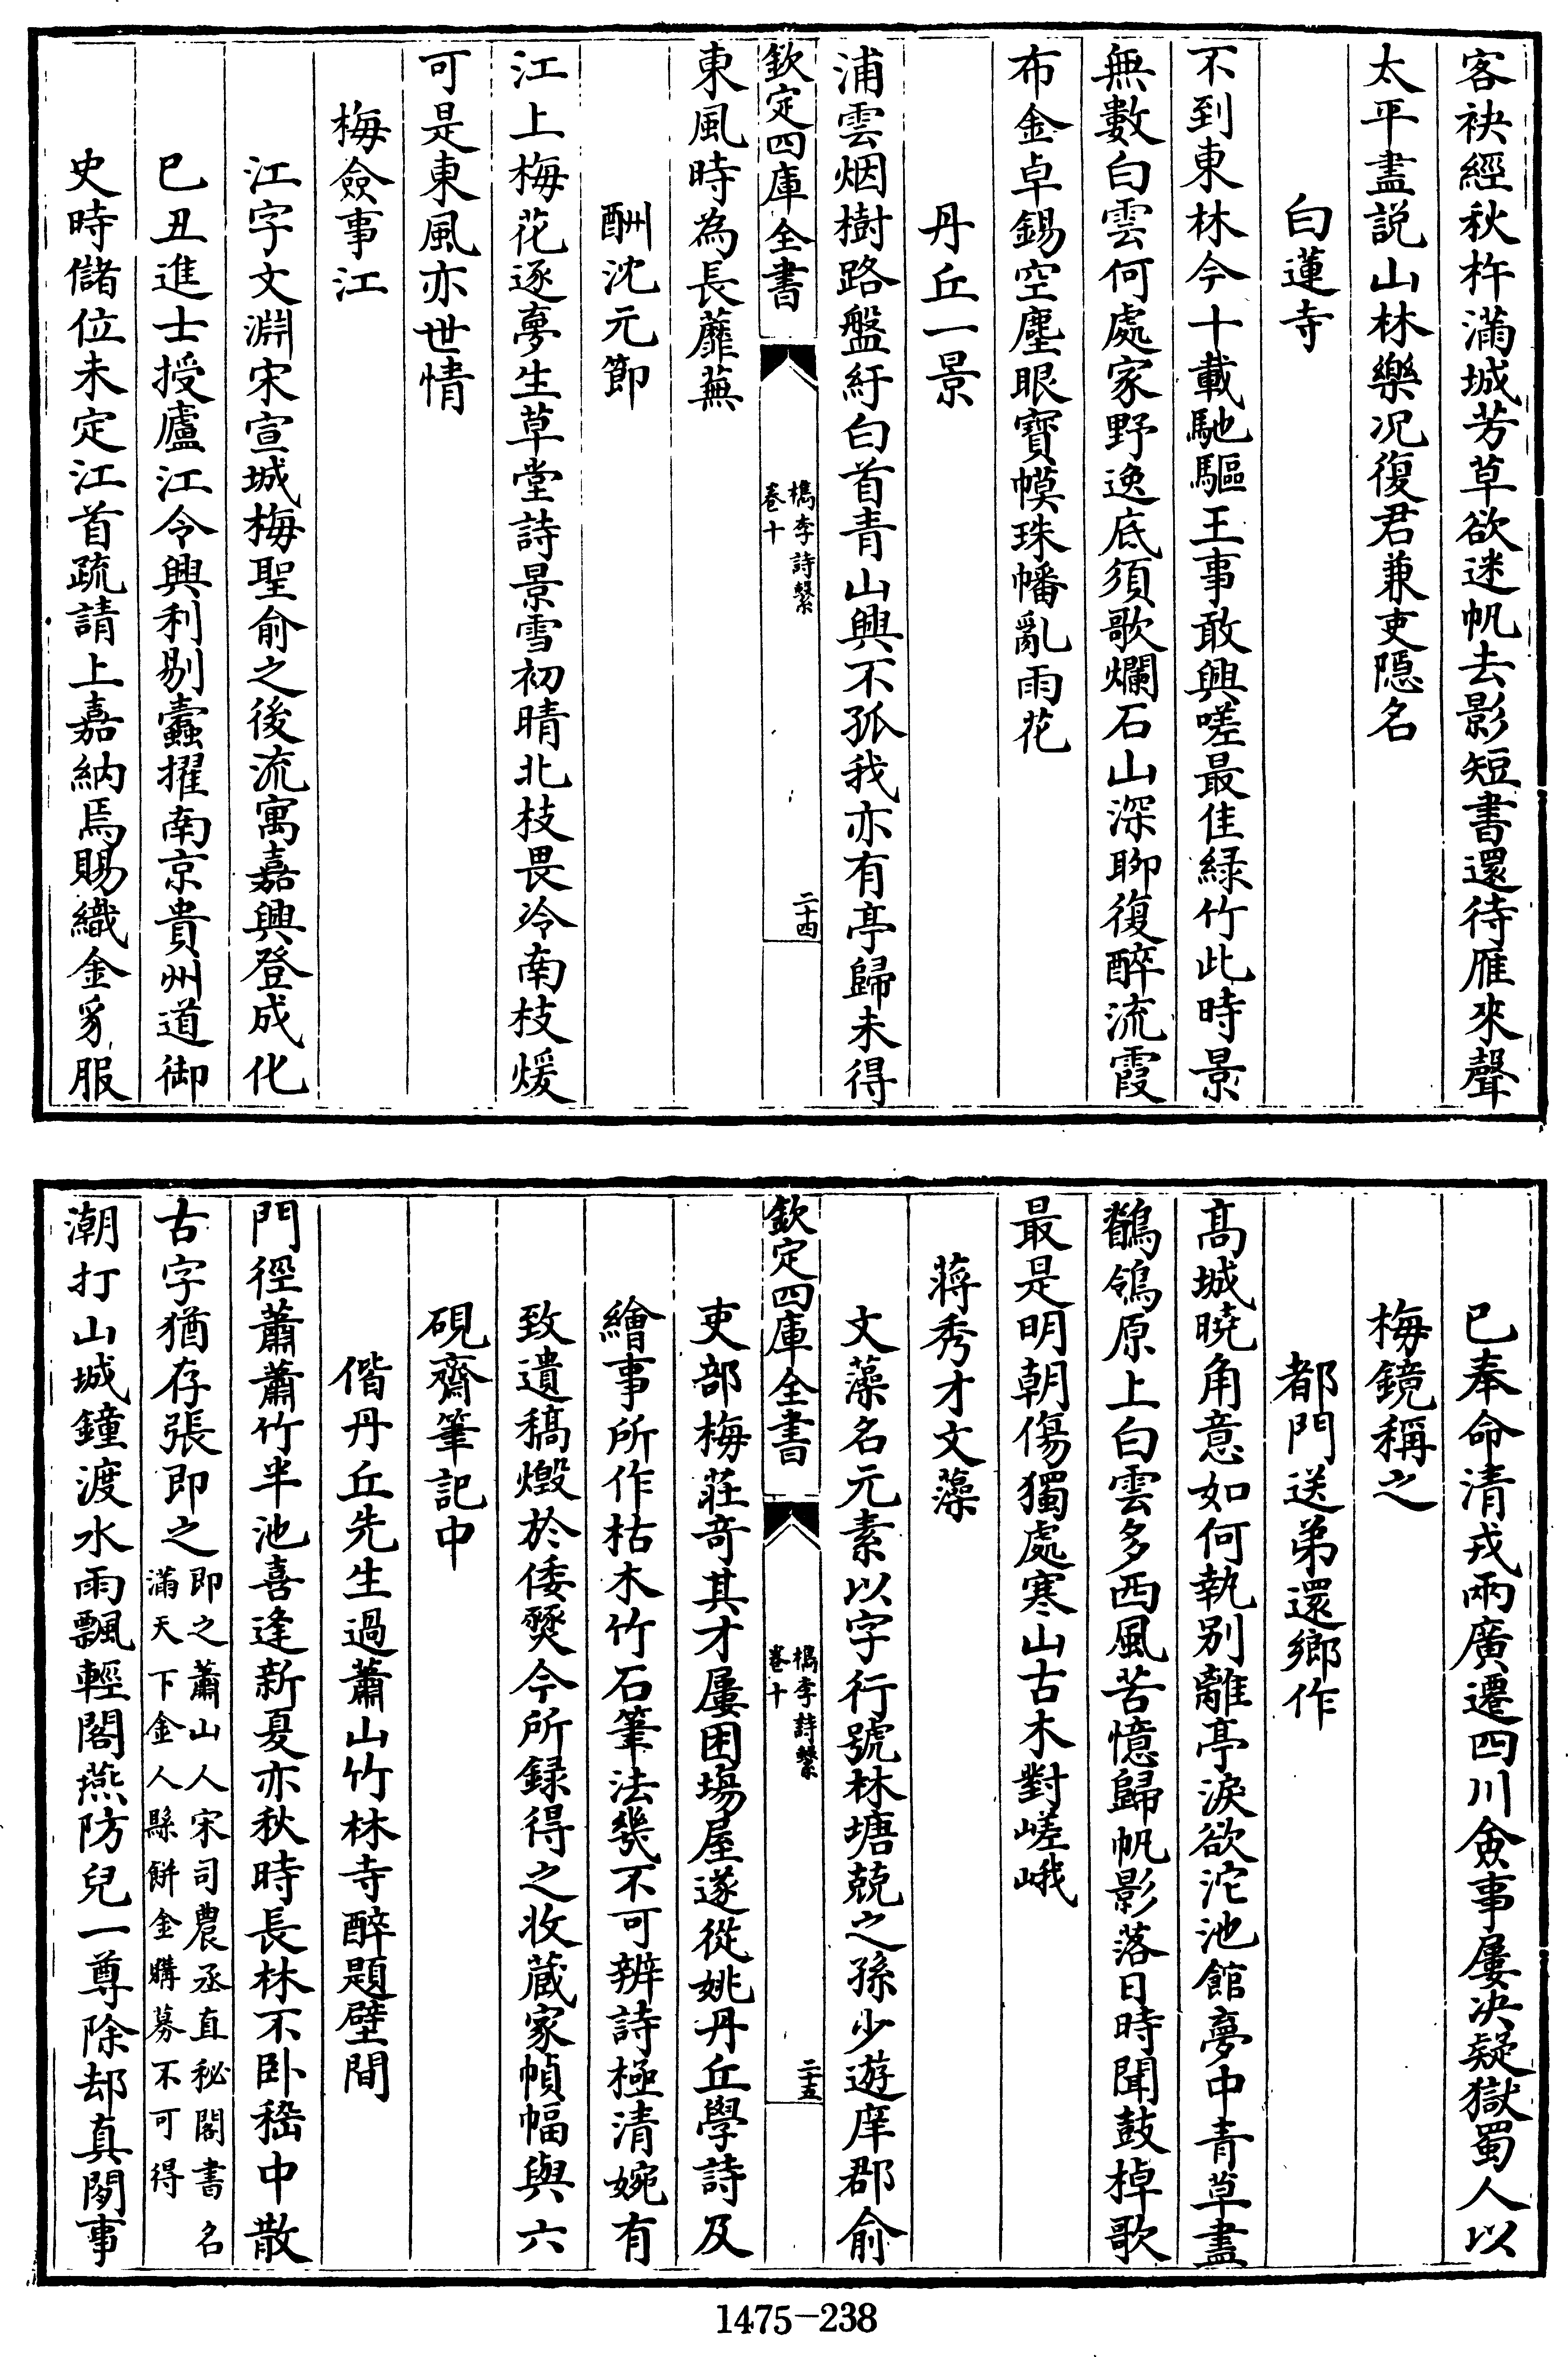 客袂經秋杵滿城芳草欲迷帆去影短書還待雁來聲
太平盡説山林樂况復君兼吏隱名
白蓮寺
不到東林今十載馳驅王事敢興嗟最佳緑竹此時景
無數白雲何處家野逸底須歌爛石山深聊復醉流霞
布金卓錫空塵眼寶幙珠幡亂雨花
丹丘一景
浦雲烟樹路盤紆白首青山興不孤我亦有亭歸未得
欽定四庫全書
檇李詩繫
卷十
二十四
東風時為長蘼蕪
酬沈元節
江上梅花逐夢生草堂詩景雪初晴北枝畏冷南枝煖
可是東風亦世情
梅僉事江
江字文淵宋宣城梅聖俞之後流寓嘉興登成化
已丑進士授廬江令興利剔蠹擢南京貴州道御
史時儲位未定江首疏請上嘉納焉賜織金豸服
已奉命清戎兩廣遷四川僉事屢决疑獄蜀人以
梅鏡稱之
都門送弟還鄉作
髙城曉角意如何執别離亭淚欲沱池館夢中青草盡
鶺鴒原上白雲多西風苦憶歸帆影落日時聞鼓棹歌
最是明朝傷獨處寒山古木對嵯峨
蔣秀才文藻
文藻名元素以字行號林塘兢之孫少遊庠郡俞
欽定四庫全書
檇李詩繫
卷十
二十五
吏部梅莊奇其才屢困塲屋遂從姚丹丘學詩及
繪事所作枯木竹石筆法㡬不可辨詩極清婉有
致遺稿燬於倭燹今所録得之收蔵家幀幅與六
硯齋筆記中
偕丹丘先生過蕭山竹林寺醉題壁間
門徑蕭蕭竹半池喜逢新夏亦秋時長林不卧嵇中散
古字猶存張即之即之蕭山人宋司農丞直秘閣書名
滿天下金人縣餅金購募不可得
潮打山城鐘渡水雨飄輕閣燕防兒一尊除却真閒事
1475-238